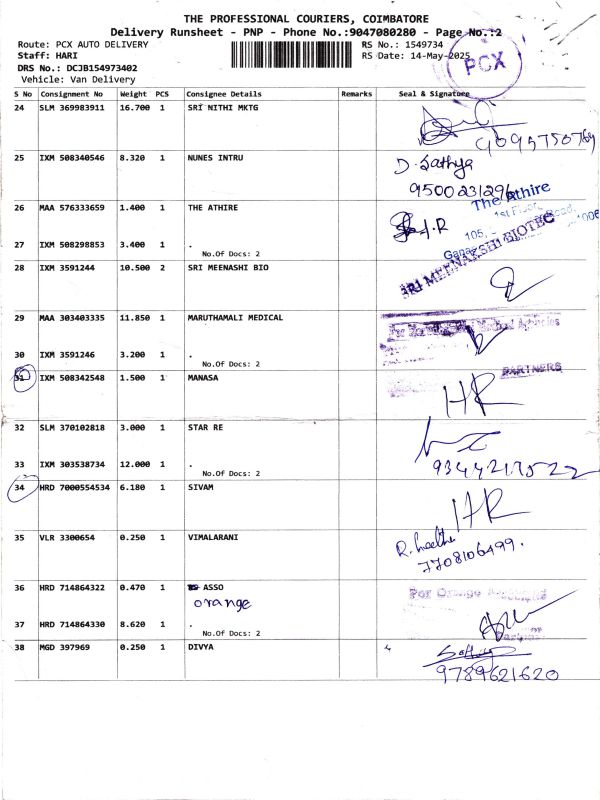 THE PROFESSIONAL COURIERS, COIMBATORE
Delivery Runsheet - PNP - Phone No.:9047080280 - Page No.:2
Route: PCX AUTO DELIVERY
RS No.: 1549734
Staff: HARI
RS Date: 14-May-2025
PCX
DRS No.: DCJB154973402
Vehicle: Van Delivery
S No Consignment No Weight PCS Consignee Details Remarks Seal & Signature
24 SLM 369983911 16.700 1 SRI NITHI MKTG
25 IXM 508340546 8.320 1 NUNES INTRU D. Sathya
26 MAA 576333659 1.400 1 THE ATHIRE The Athire
1st Floor,
105,
27 IXM 508298853 3.400 1 .
No.Of Docs: 2
28 IXM 3591244 10.500 2 SRI MEENASHI BIO SRI MEENAKSHI BIOTEC
29 MAA 303403335 11.850 1 MARUTHAMALI MEDICAL
For Medical Agencies
30 IXM 3591246 3.200 1 .
No.Of Docs: 2
PARTNERS
31 IXM 508342548 1.500 1 MANASA HR
32 SLM 370102818 3.000 1 STAR RE
33 IXM 303538734 12.000 1 .
9344217522
No.Of Docs: 2
34 HRD 7000554534 6.180 1 SIVAM HR
35 VLR 3300654 0.250 1 VIMALARANI
7708106499.
36 HRD 714864322 0.470 1 ASSO For Orange
orange
37 HRD 714864330 8.620 1 .
No.Of Docs: 2
38 MGD 397969 0.250 1 DIVYA
9789621620